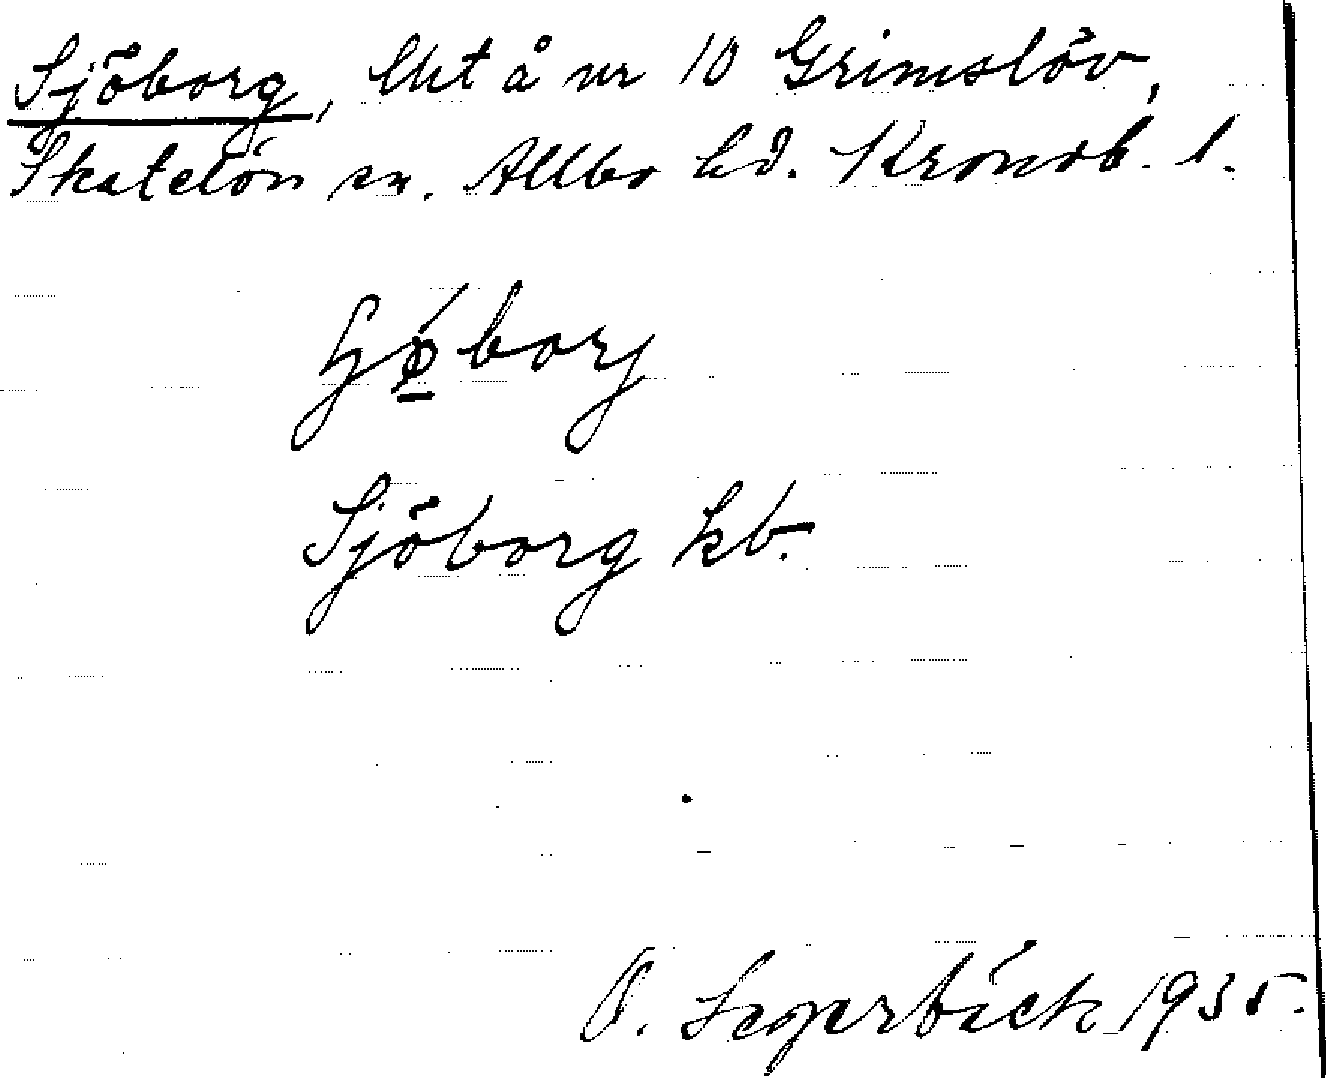 Sjöborg, lht å nr 10 Grimslöv,
Skatelöv sn. Allbo hd. Kronob. l.
Sjöborg kb.
Segerbäck 1935.